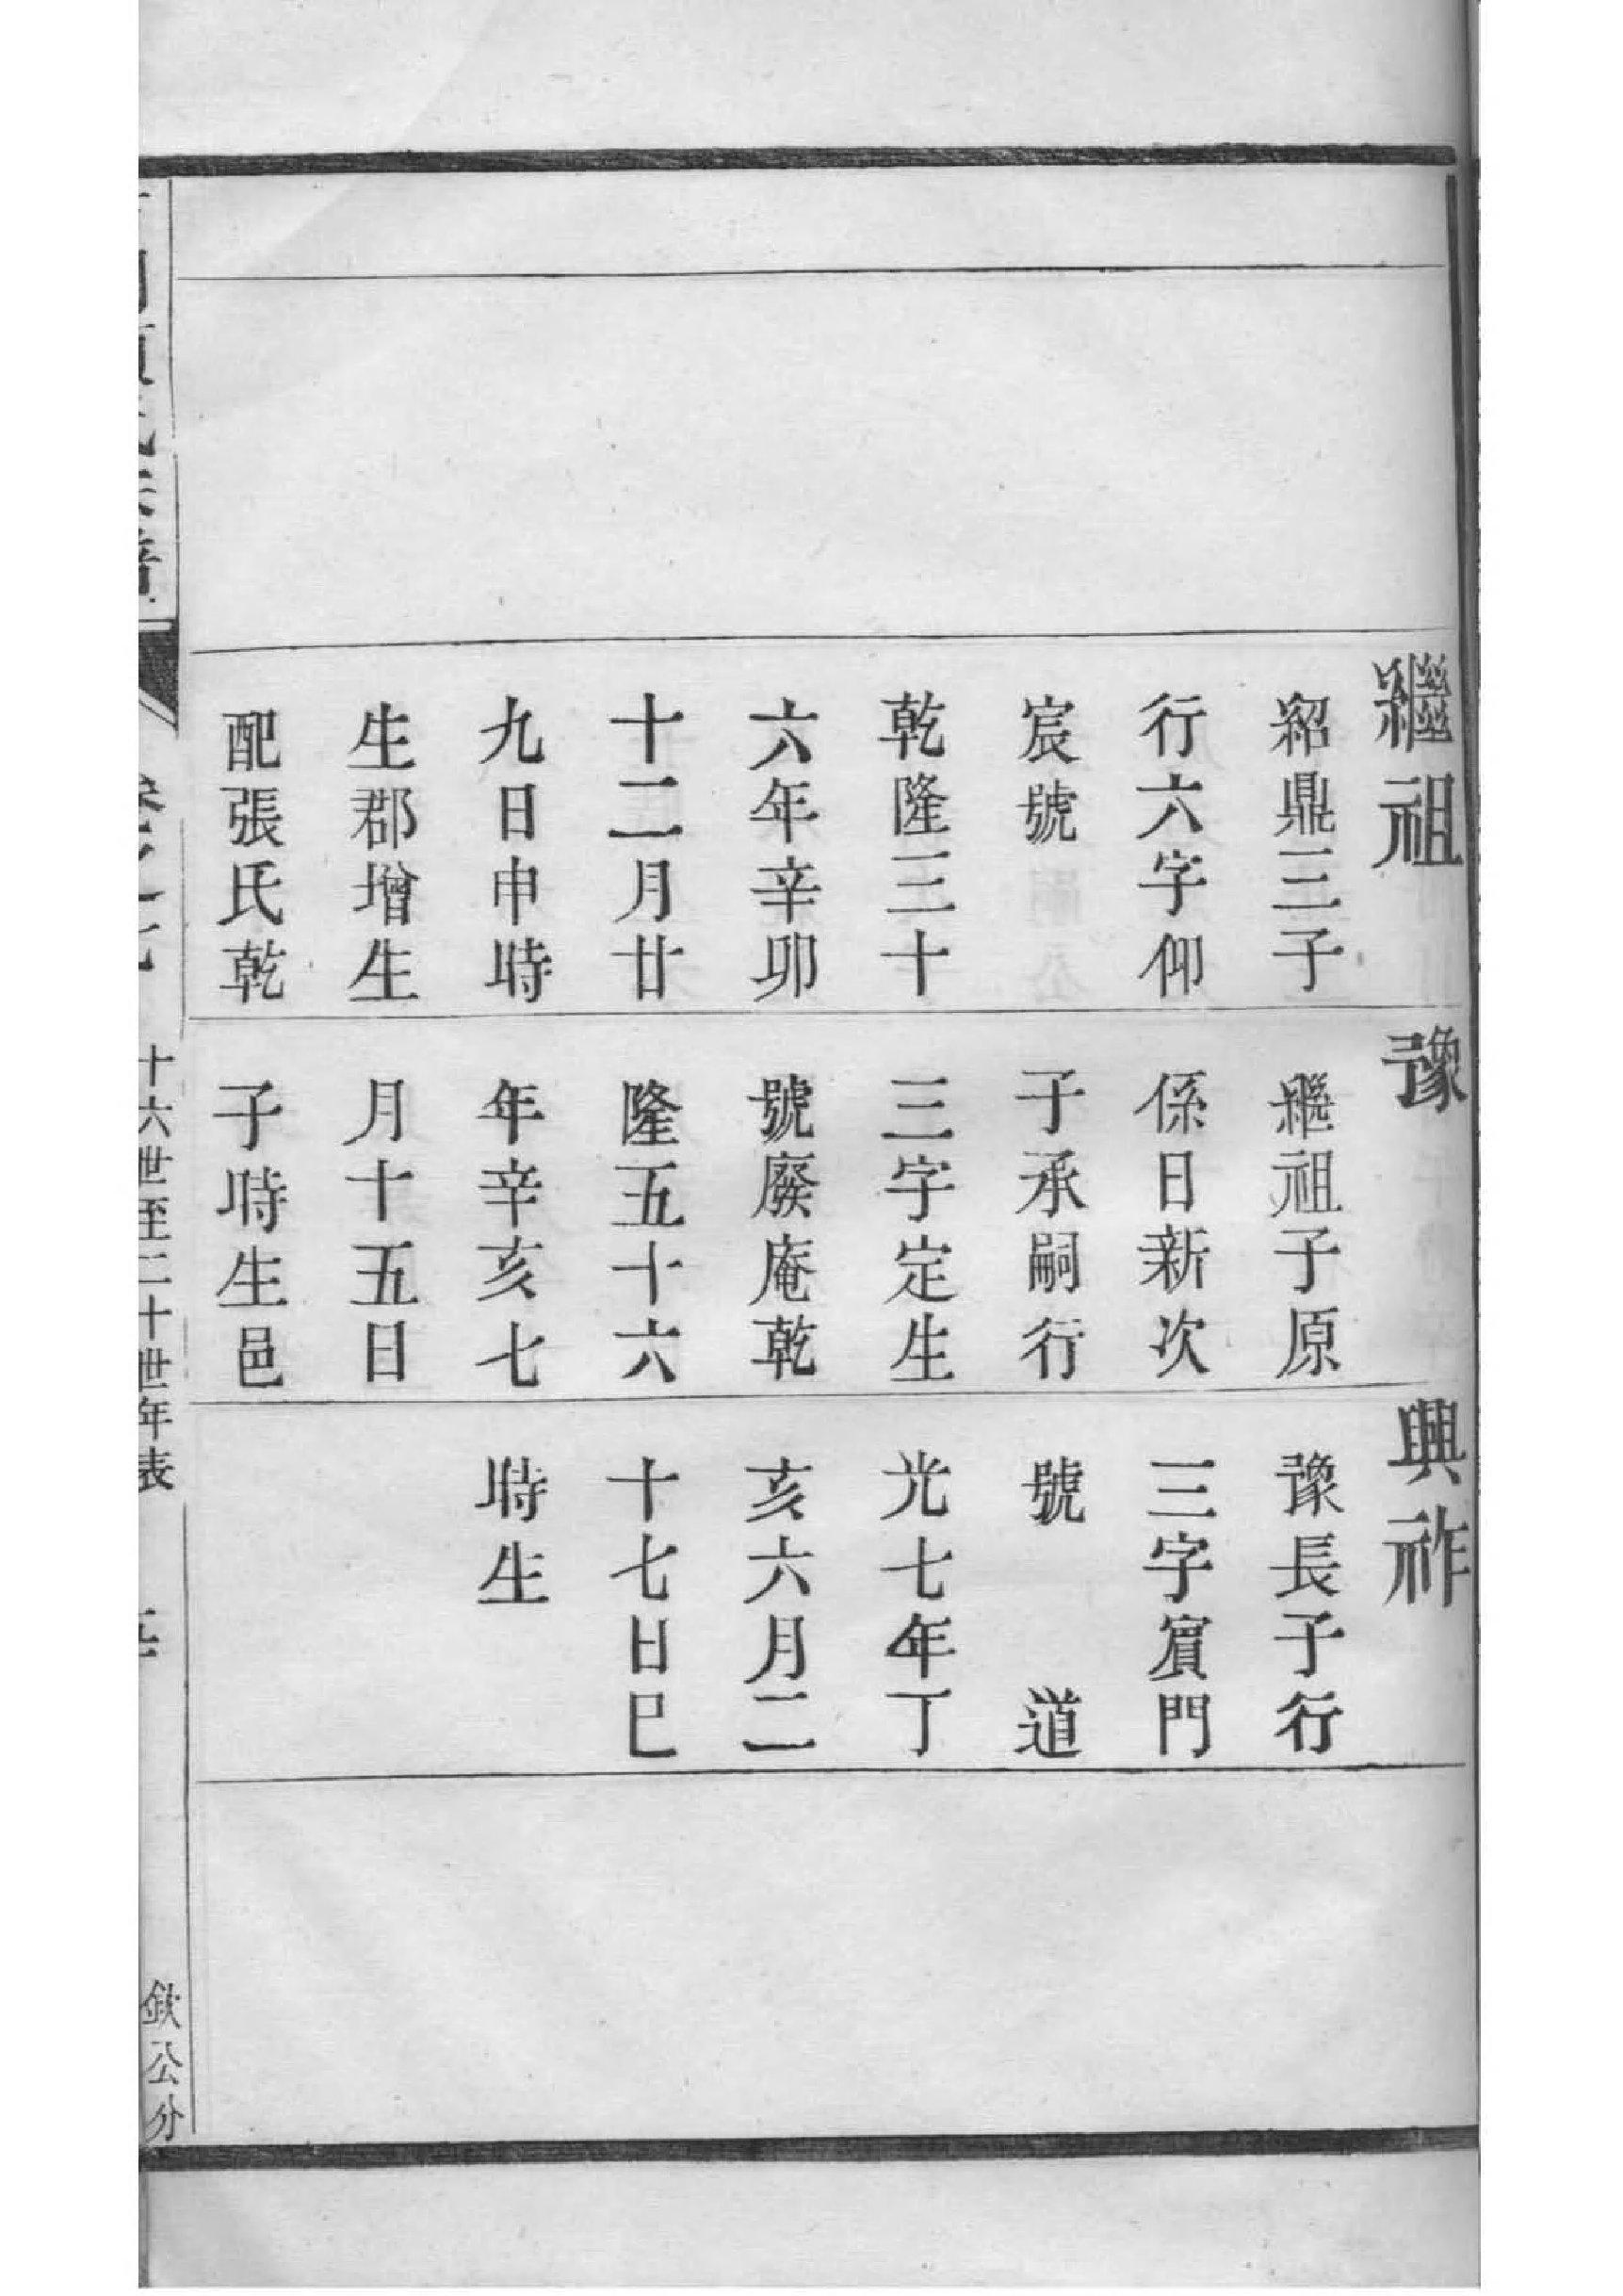 繼祖
紹鼎三子
行六字仰
宸號
乾隆三十
六年辛卯
十二月廿
九日申時
生郡增生
配張氏乾
豫
繼祖子原
係日新次
子承嗣行
三字定生
號廢庵乾
隆五十六
年辛亥七
月十五日
子時生邑
興祚
豫長子行
三字賓門
號 道
光七年丁
亥六月二
十七日巳
時生
十六世至二十世年表
欽公分